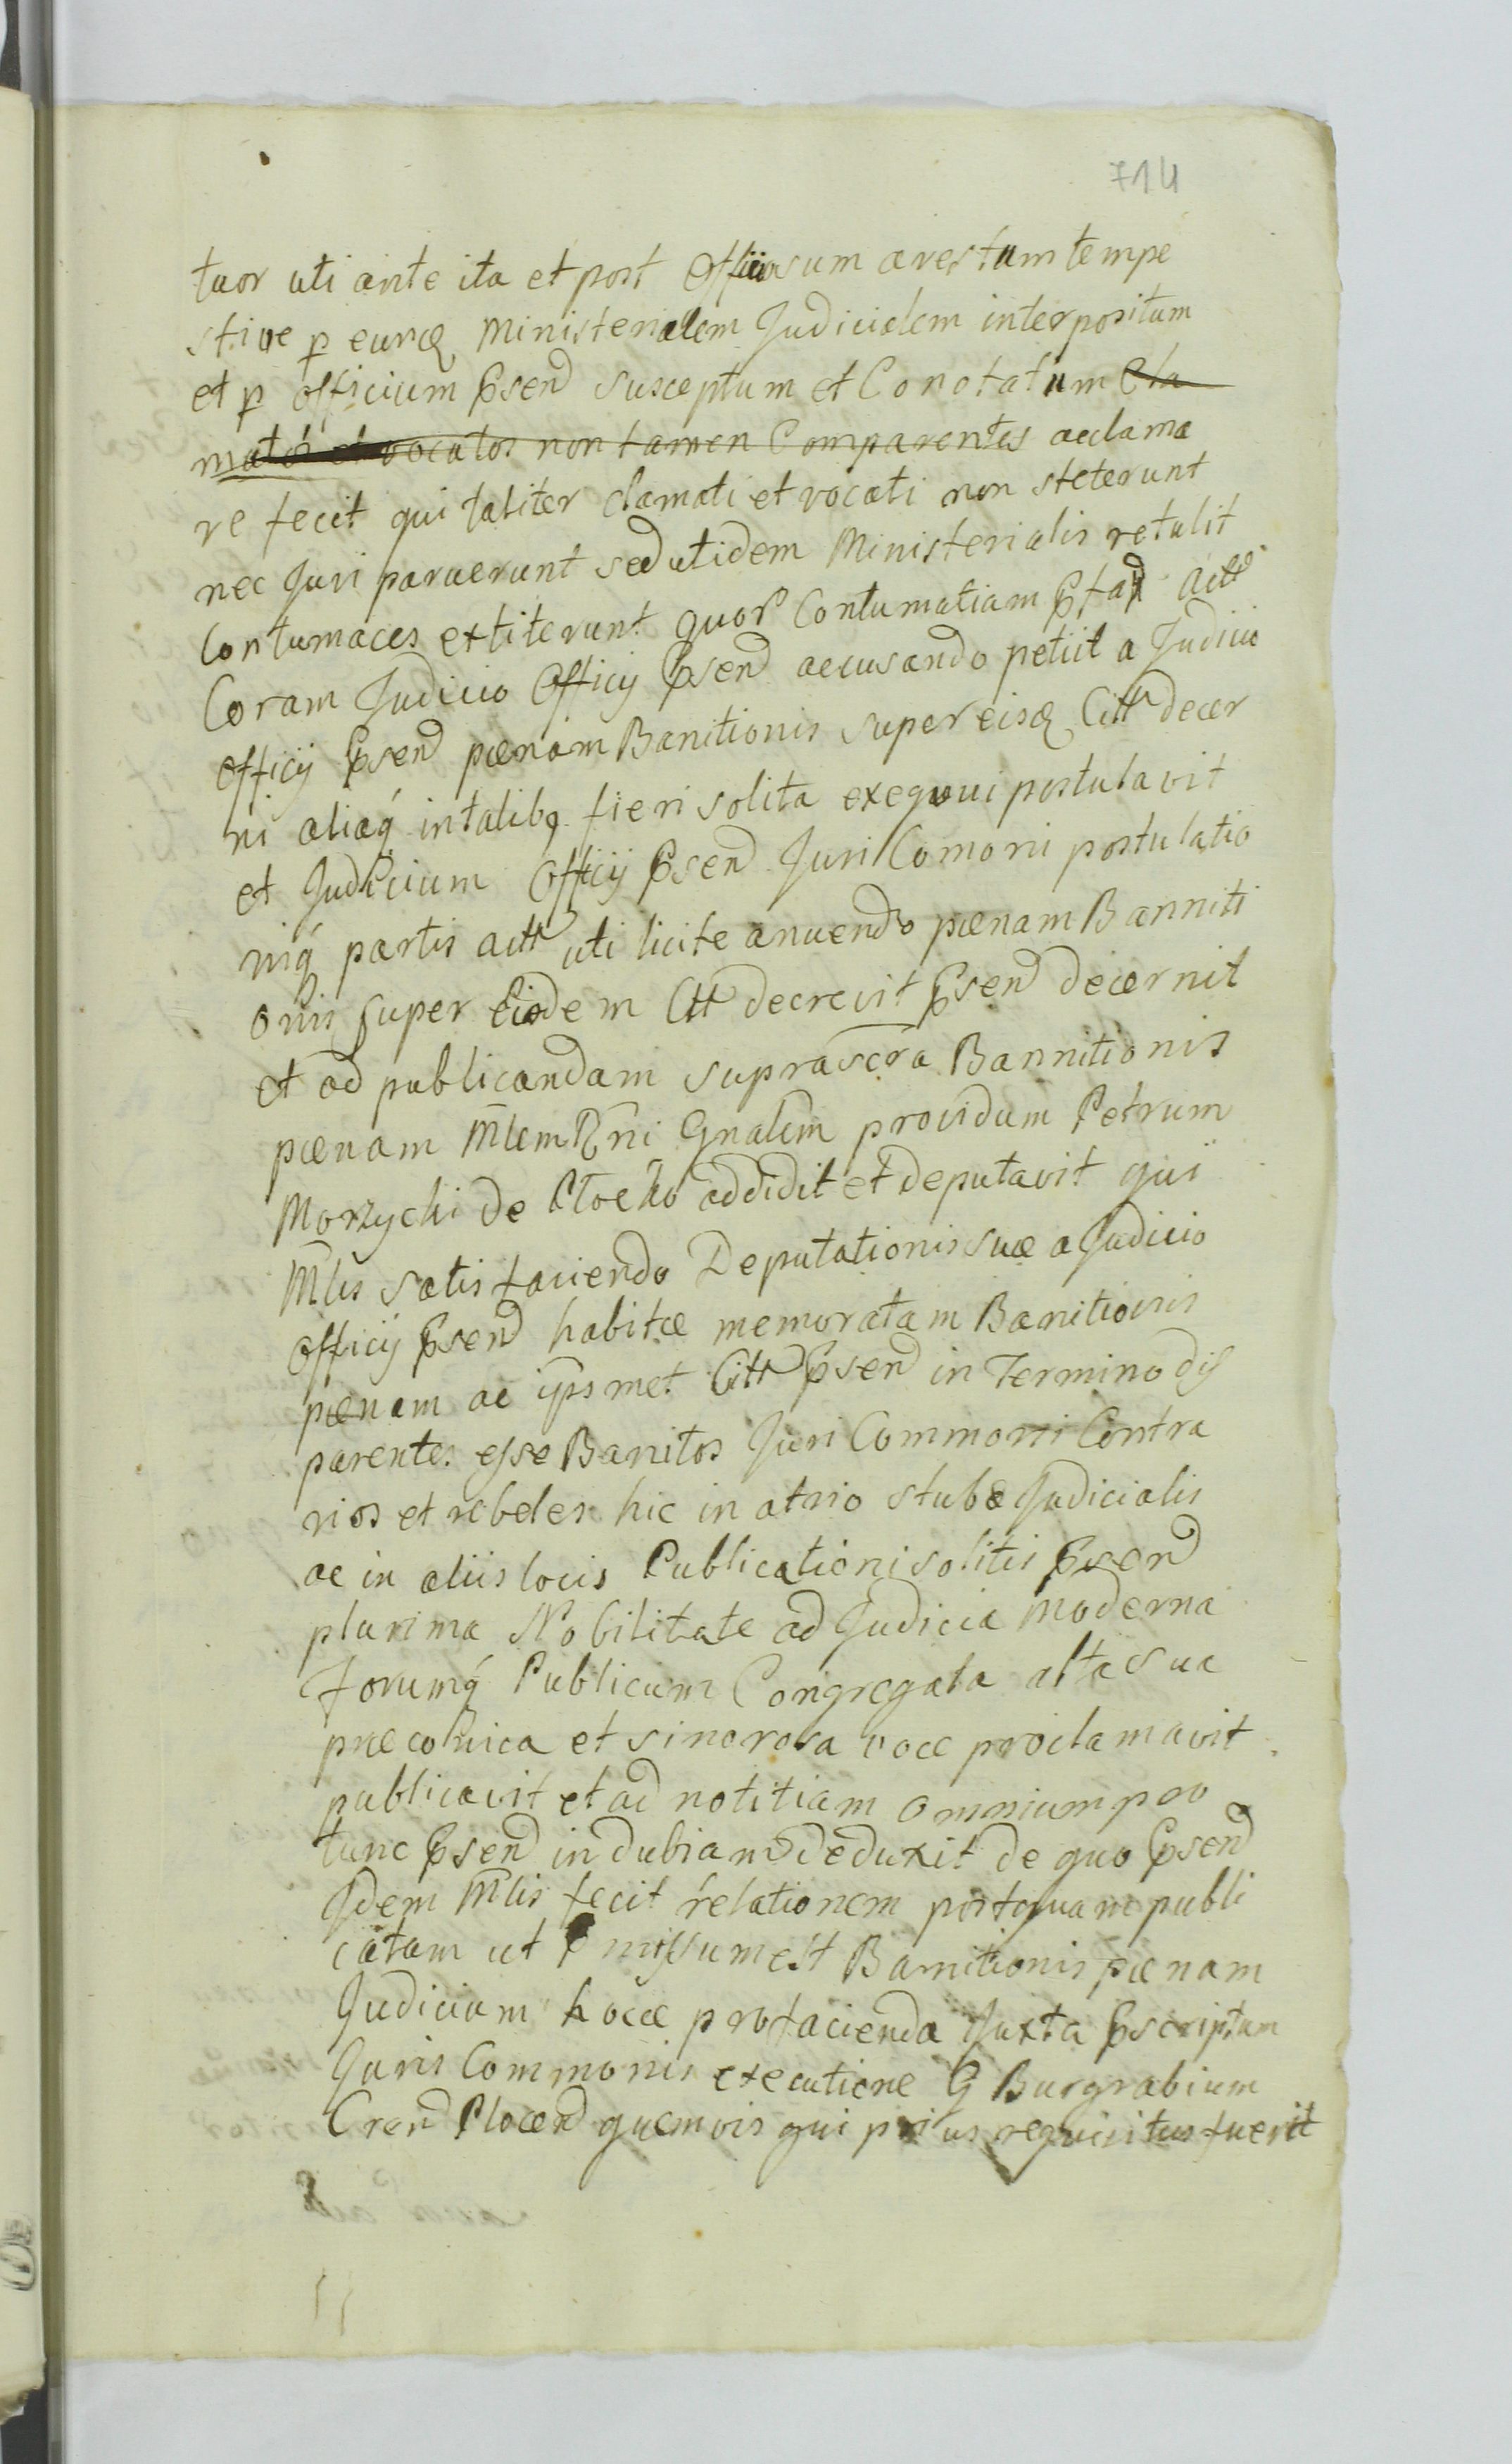 714
tuor uti ante ita et post Officiosum arestum tempe
stive p eunq Ministerialem Judicialem interpositum
et p officium Psend susceptum et Conotatum Cla
matos et vocatos non tamen Comparentes acclama
re fecit qui taliter clamati et vocati non steterunt
nec Juri paruerunt sed utidem Ministerialis retulit
Contumaces extiterunt quor Contumatiam Pfa Actt
Coram Judicio Officij Psend accusando petiit a Judicio
officij Psend pænam Banitionis super eisq Citt decer
ni aliaq intalibq fieri solita exequui postulavit
et Judicium Officij Psend Juri Comoni postulatio
niq partis actt uti licite anuendo pænam Banniti
onis super Eisdem Citt decrevit Psend decernit
et ad publicandam suprascra Bannitionis
pænam Mlem Rni Gnalem providum Petrum
Morzycki de Plocko addidit et deputavit qui
Mlis satisfaciendo Deputationis suæ a Judicio
officij Psend habitæ memoratam Banitionis
pænam ac ipsmet Citt Psend in Termino dis
parentes esse Banitos Juri Commoni Contra
rios et rebeles hic in atrio stubæ Judicialis
ac in aliis locis Publicationi solitis Psend
plurima Nobilitate ad Judicia moderna
Forumq Publicum Congregata alta sua
præconica et sinorosa voce proclamavit
publicavit et ad notitiam omnium pro
tunc Psend indubiam deduxit de quo Psend
Idem Mlis fecit relationem postquam publi
catam ut P missum est Bannitionis pænam
Judicium hocce pro facienda Juxta Pscriptum
Juris Commonis executione G Burgrabium
Cren Plocen quemvis qui prius requisitus fuerit